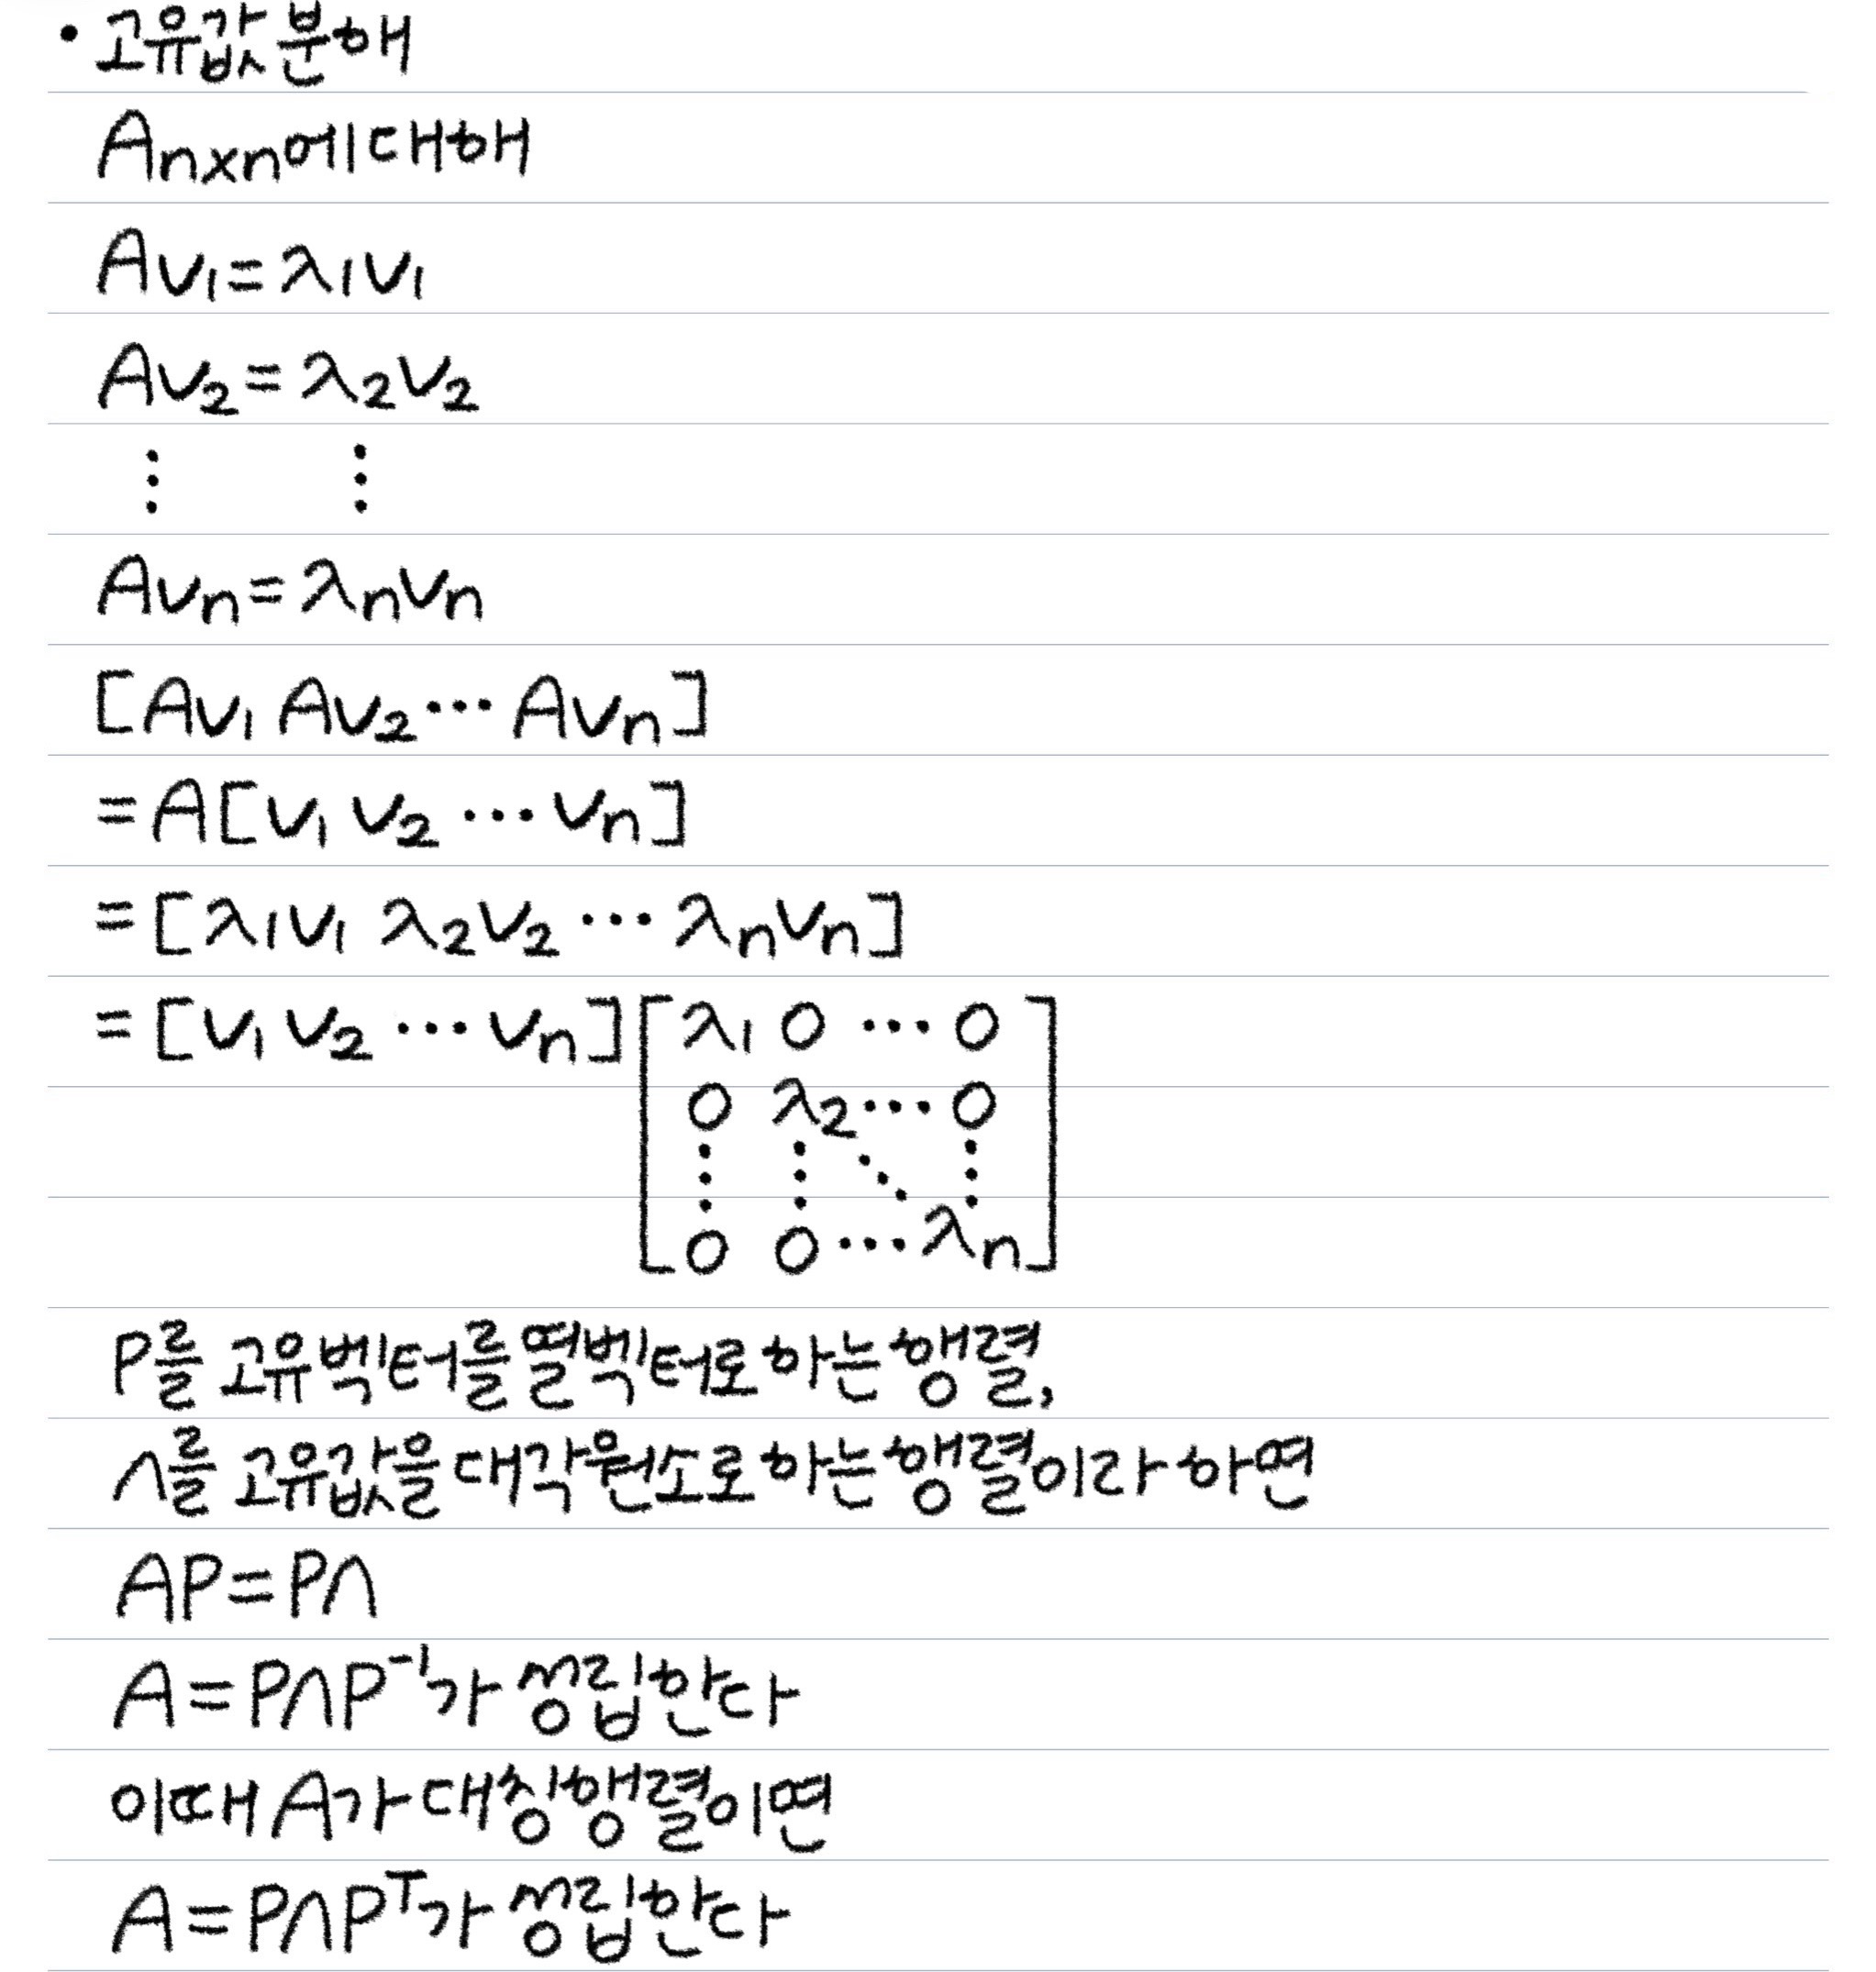 • 고유값 분해
Anxn에 대해
Av₁ = λ₁v₁
Av₂ = λ₂v₂
⋮ ⋮
Avn = λnvn
[Av₁ Av₂ ⋯ Avn]
= A[v₁ v₂ ⋯ vn]
= [λ₁v₁ λ₂v₂ ⋯ λnvn]
= [v₁ v₂ ⋯ vn] [λ₁ 0 ⋯ 0
0 λ₂ ⋯ 0
⋮ ⋮ ⋱ ⋮
0 0 ⋯ λn]
P를 고유벡터를 열벡터로 하는 행렬,
Λ를 고유값을 대각원소로 하는 행렬이라 하면
AP = PΛ
A = PΛP⁻¹가 성립한다
이때 A가 대칭행렬이면
A = PΛPᵀ가 성립한다